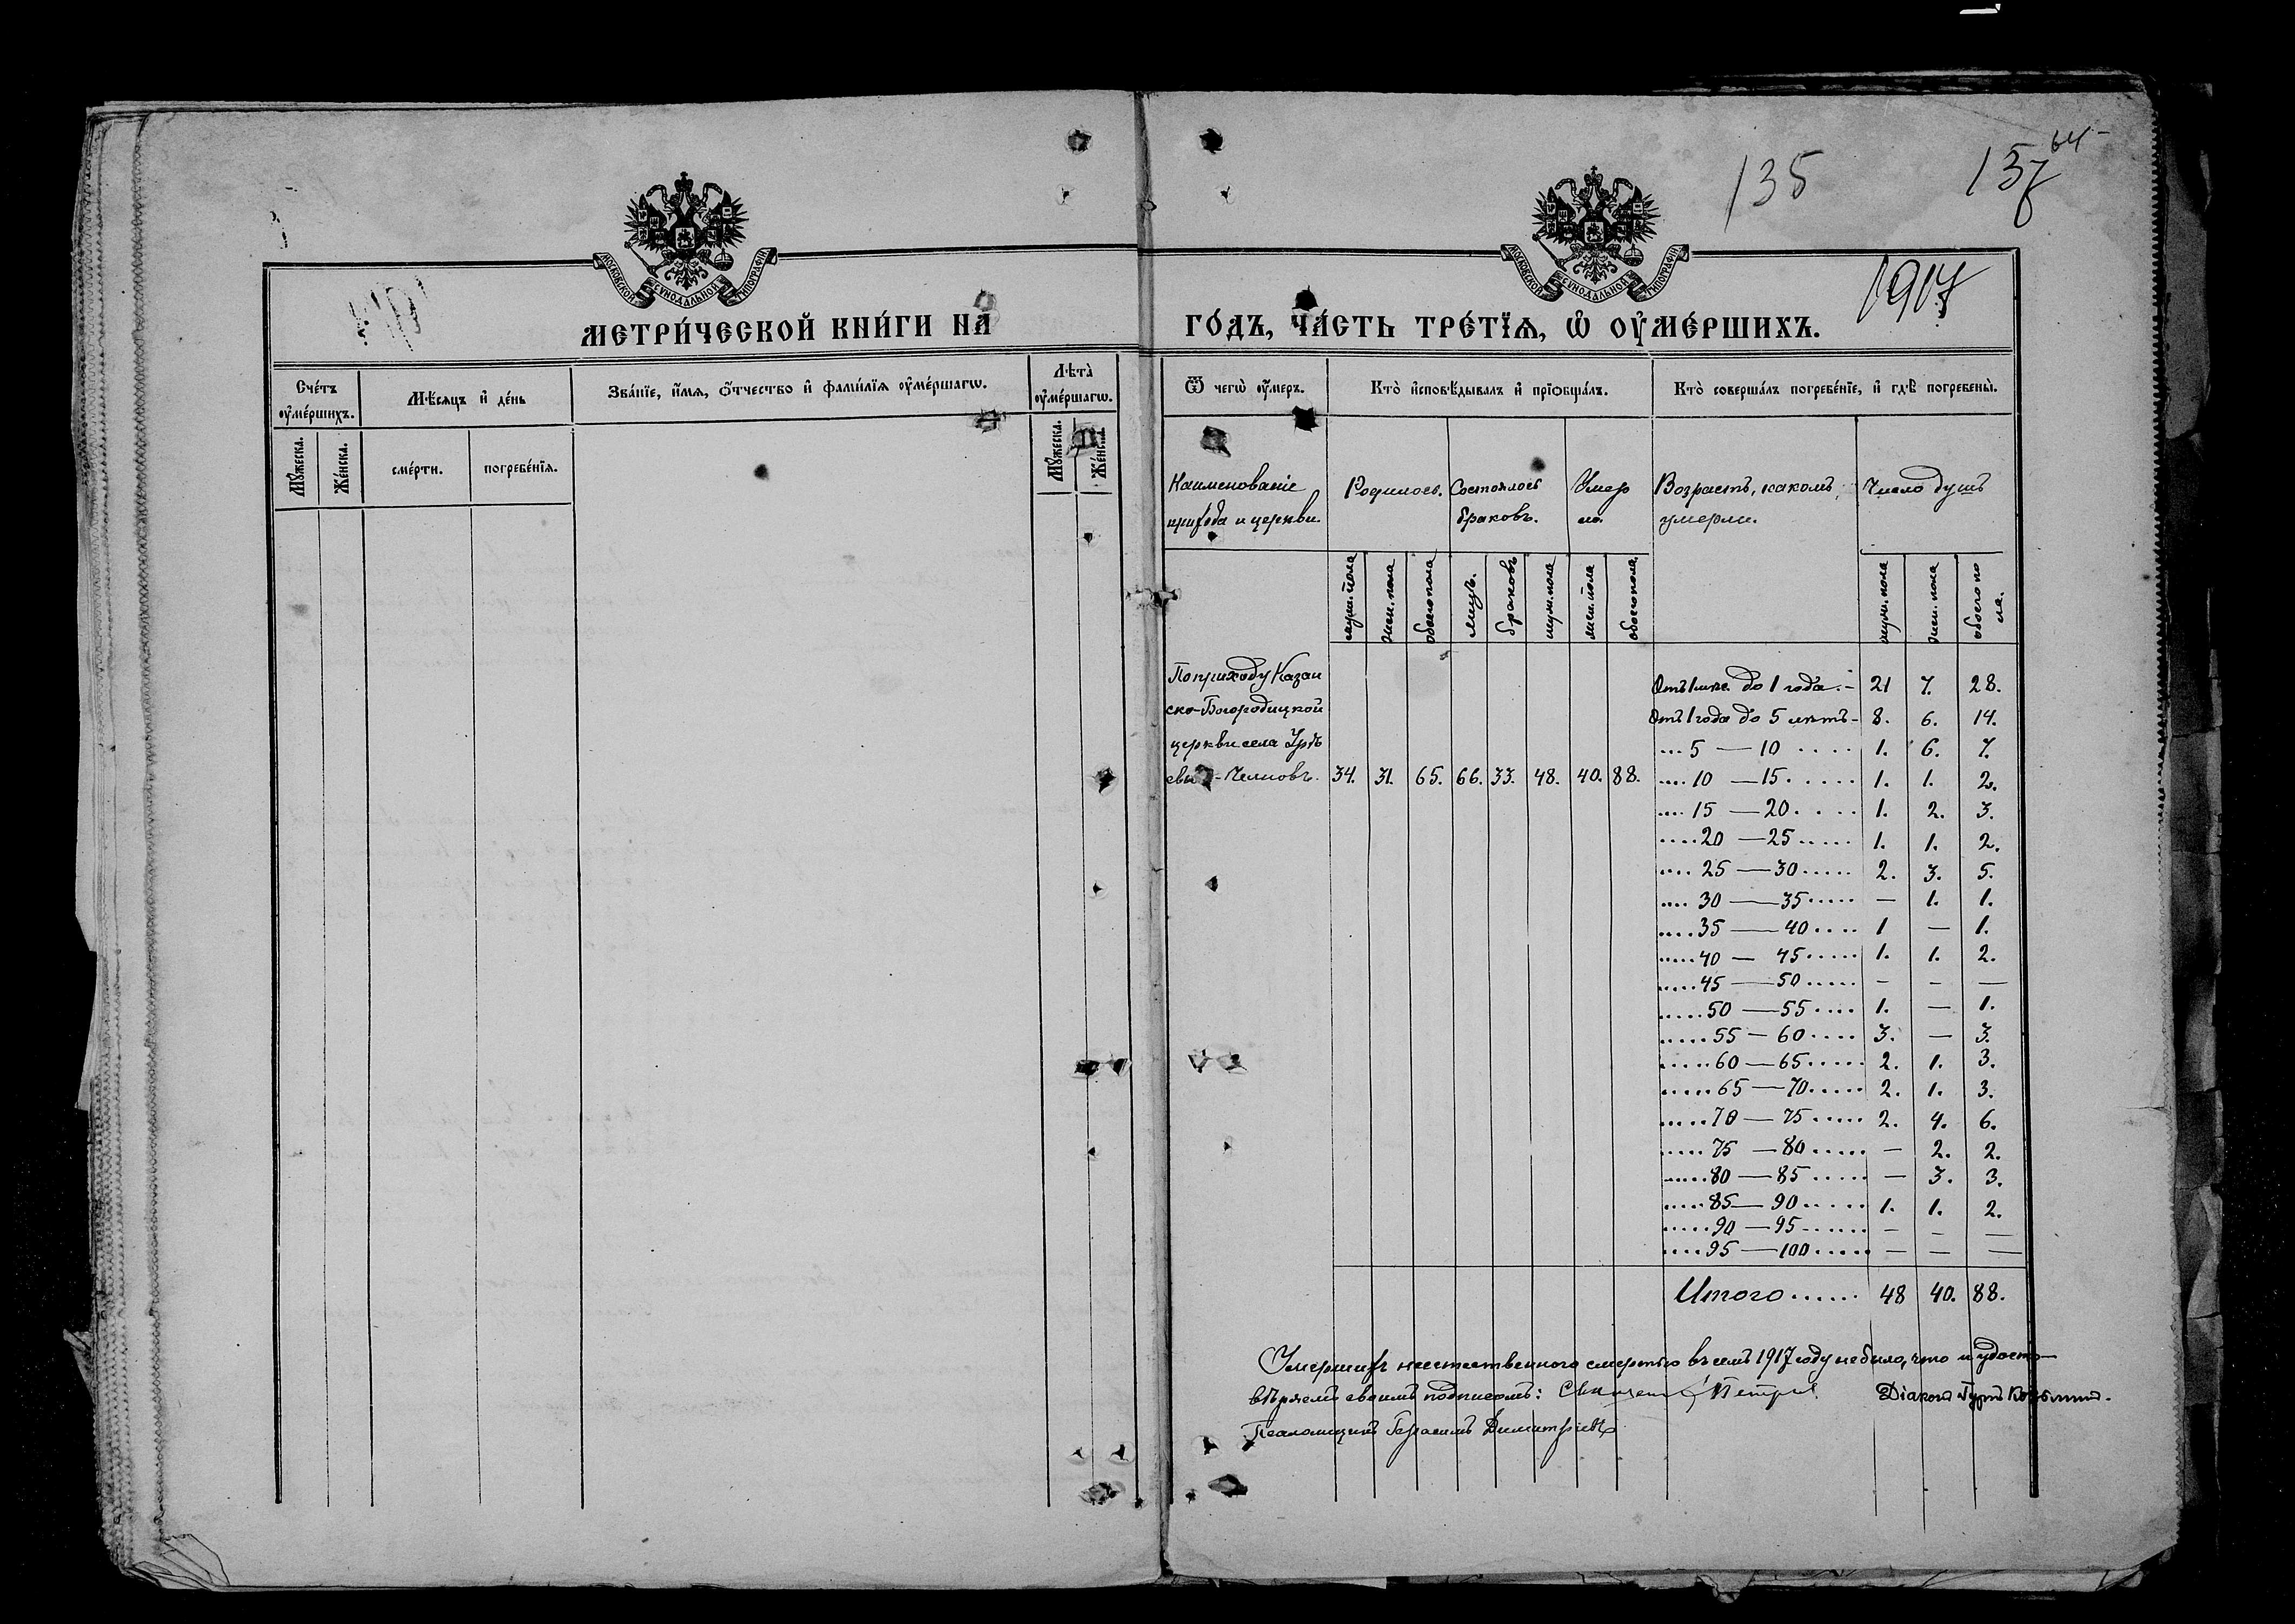 135
137
64
МОСКОВСКОЙ СѴНОДАЛЬНОЙ ТИПОГРАФІИ
МОСКОВСКОЙ СѴНОДАЛЬНОЙ ТИПОГРАФІИ
1917
МЕТРИ́ЧЕСКОЙ КНИ́ГИ НА ГО́ДЪ, ЧА́СТЬ ТРЕ́ТЇѦ, Ѡ҆ ОУ҆МЕ́РШИХЪ.
Сче́тъ оу҆ме́ршихъ.
Мѣ́сяцъ и҆ де́нь
Зва́нїе, и҆́мя, ѻ҆́тчество и҆ фами́лїя оу҆ме́ршагѡ.
Лѣта̀ оу҆ме́ршагѡ.
Ѿ чегѡ̀ оу҆́меръ.
Кто̀ и҆сповѣ́дывалъ и҆ прїѻбща́лъ.
Кто̀ соверша́лъ погребе́нїе, и҆ гдѣ̀ погребены̀.
Мꙋ́жеска.
Же́нска.
сме́рти.
погребе́нїя.
Мꙋ́жеска.
Же́нска.
Наименованіе прихода и церкви.
Родилось.
Состоялось браковъ.
Умерло.
Возрастъ, какомъ умерли.
Число душъ
муж. пола
жен. пола
обоего пола
лицъ.
браковъ
муж. пола
жен. пола
обоего пола.
муж. пола
жен. пола
обоего пола.
По приходу Казан
ско-Богородицкой
церкви села
Челновъ. 34. 31. 65. 66. 33. 48. 40. 88.
Отъ 1 мѣс. до 1 года.- 21 7. 28.
Отъ 1 года до 5 лѣтъ- 8. 6. 14.
... 5 — 10 .... 1. 6. 7.
.... 10 — 15 ..... 1. 1. 2.
.... 15 — 20 .... 1. 2. 3.
.... 20 — 25 ..... 1. 1. 2.
.... 25 — 30 ..... 2. 3. 5.
.... 30 — 35 ..... — 1. 1.
.... 35 — 40 .... 1 — 1.
..... 40 — 45 ..... 1. 1. 2.
..... 45 — 50 ..... — — —
..... 50 — 55 .... 1. — 1.
..... 55 — 60 .... 3. — 3.
..... 60 — 65 ..... 2. 1. 3.
..... 65 — 70 ..... 2. 1. 3.
..... 70 — 75 ..... 2. 4. 6.
..... 75 — 80 ..... — 2. 2.
..... 80 — 85 ..... — 3. 3.
..... 85 — 90 ..... 1. 1. 2.
..... 90 — 95 ...... — — —
.... 95 — 100 ..... — — —
Итого ...... 48 40. 88.
Умершихъ неестественного смертью въ семъ 1917 году не было, что и удосто-
вѣряемъ своимъ подписомъ: Священ. Петров. Діаконъ Гурій Козьмин.
Псаломщикъ Герасимъ Димитріевъ